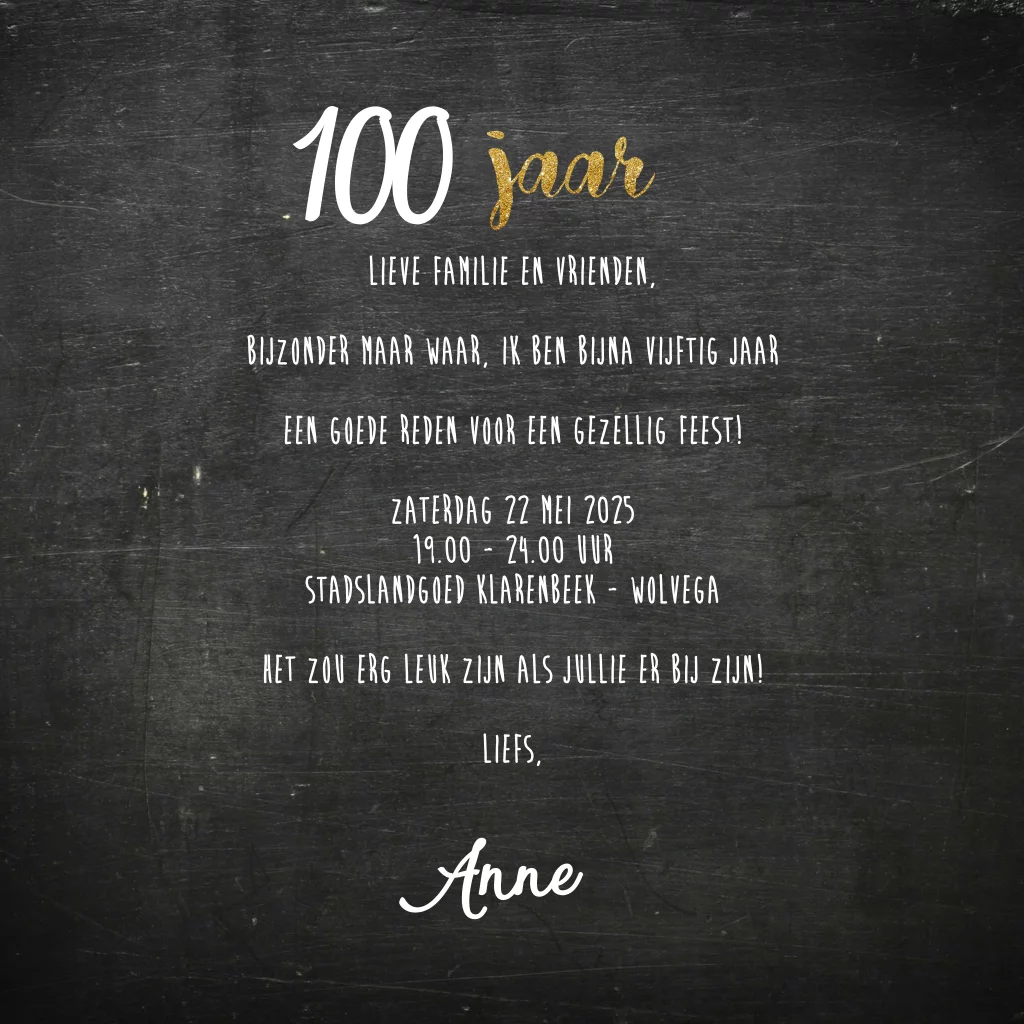 100 jaar
LIEVE FAMILIE EN VRIENDEN,
BIJZONDER MAAR WAAR, IK BEN BIJNA VIJFTIG JAAR
EEN GOEDE REDEN VOOR EEN GEZELLIG FEEST!
ZATERDAG 22 MEI 2025
19.00 - 24.00 UUR
STADSLANDGOED KLARENBEEK - WOLVEGA
HET ZOU ERG LEUK ZIJN ALS JULLIE ER BIJ ZIJN!
LIEFS,
Anne